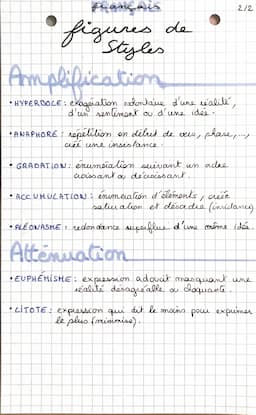 français
2/2
figures de
Styles
Amplification
• HYPERBOLE : exagération volontaire d'une réalité,
d'un sentiment ou d'une idée.
• ANAPHORE : répétition en début de vers, phrase, ...,
crée une insistance.
• GRADATION : énumération suivant un ordre
croissant ou décroissant.
• ACCUMULATION : énumération d'éléments, créée
saturation et désordre (insistance)
• PLÉONASME : redondance superflue d'une même idée.
Atténuation
• EUPHÉMISME : expression adoucit masquant une
réalité désagréable ou choquante.
• LITOTE : expression qui dit le moins pour exprimer
le plus (minimise).